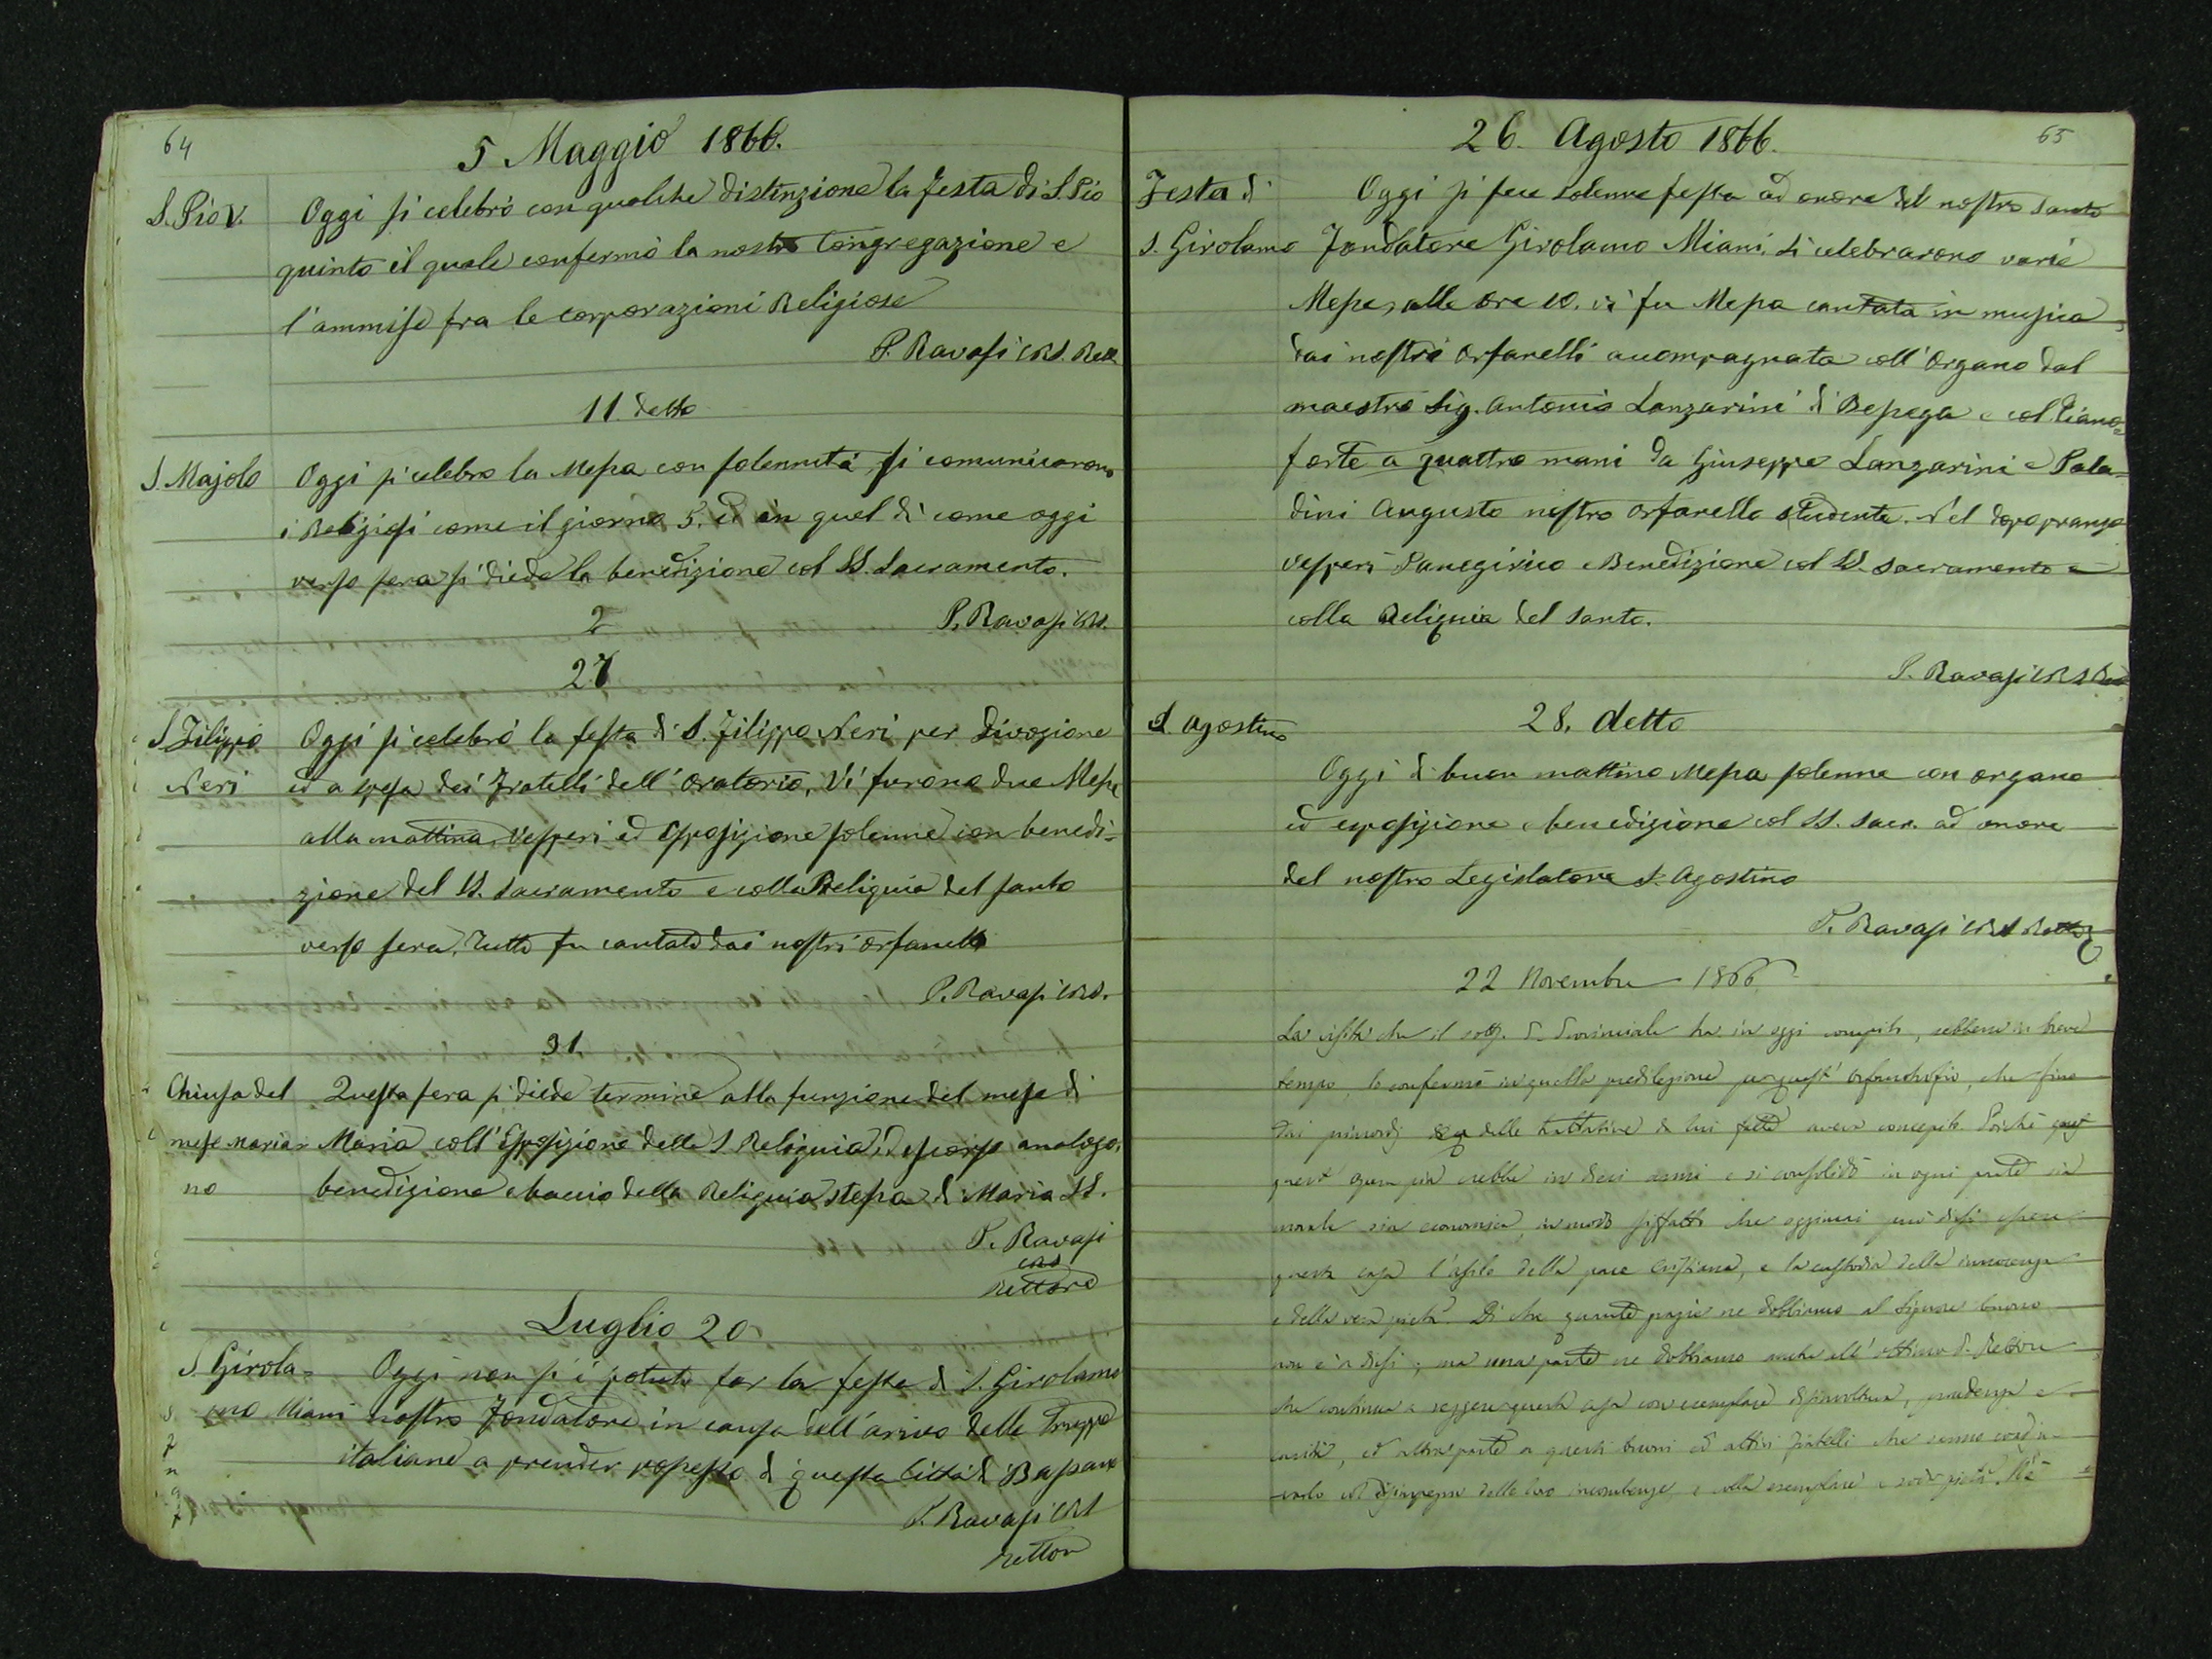 64
5 Maggio 1866.
S. Pio V. Oggi si celebrò con qualche distinzione la festa di S. Pio
quinto il quale confermò la nostra Congregazione e
l'ammise fra le corporazioni Religiose
P. Ravasi CRS. Rett.
11 detto
S. Majolo Oggi si celebrò la Messa con solennità, si comunicarono
i Religiosi come il giorno 5. ed in quel dì come oggi
verso sera si diede la benedizione col SS. Sacramento.
2 P. Ravasi CRS.
27
S. Filippo Oggi si celebrò la festa di S. Filippo Neri per divozione
Neri ed a spesa dei Fratelli dell'Oratorio, Vi furono due Messe
alla mattina, Vesperi ed Esposizione solenne con benedi=
zione del SS. Sacramento e colla Reliquia del santo
verso sera. Tutto fu cantato dai nostri orfanelli
P. Ravasi CRS.
31
Chiusa del Questa sera si diede termine alla funzione del mese di
mese Maria- Maria coll'Esposizione della S. Reliquia, Discorso analogo,
no benedizione e bacio della Reliquia stessa di Maria SS.
P. Ravasi
CRS
Rettore
Luglio 20
S. Girola= Oggi non si è potuto far la festa di S. Girolamo
mo Miani nostro Fondatore in causa dell'arrivo delle Truppe
italiane a prender possesso di questa Città di Bassano
P. Ravasi CRS
Rettore
65
26. Agosto 1866.
Festa di Oggi si fece solenne festa ad onore del nostro Santo
S. Girolamo Fondatore Girolamo Miani. Si celebrarono varie
Messe, alle ore 10. vi fu Messa cantata in musica
dai nostri Orfanelli accompagnata coll'Organo dal
maestro Sig. Antonio Lanzarini di Bessega e col Piano=
forte a quattro mani da Giuseppe Lanzarini e Pala=
dini Augusto nostro Orfanello studente. Nel dopopranzo
Vesperi Panegirico e Benedizione col SS. Sacramento e
colla Reliquia del Santo.
P. Ravasi CRS Rett
S. Agostino 28. detto
Oggi di buon mattino Messa solenne con organo
ed esposizione e benedizione col SS. Sacr. ad onore
del nostro Legislatore S. Agostino
P. Ravasi CRS Rettore
22 Novembre 1866
La visita che il sott. P. Provinciale ha in oggi compita, sebbene in breve
tempo, lo confermò in quella predilezione per quest'orfanotrofio, che fino
dai primordj delle trattative di lui fatte aveva concepita. Poichè
quest'opera più crebbe in dieci anni e si consolidò in ogni parte sia
morale sia economica, in modo siffatto che oggimai può dirsi essere
questa casa l'asilo della pace cristiana, e la custodia della innocenza
e della vera pietà. Di che quante grazie ne dobbiamo al Signore buono
non è a dirsi; ma una parte ne dobbiamo anche all'ottimo P. Rettore
che continua a reggere questa casa con esemplare disinvoltura, prudenza e
carità, ed altra parte a questi buoni ed attivi fratelli che vanno
col disimpegno delle loro incombenze, e colla esemplare e soda pietà.